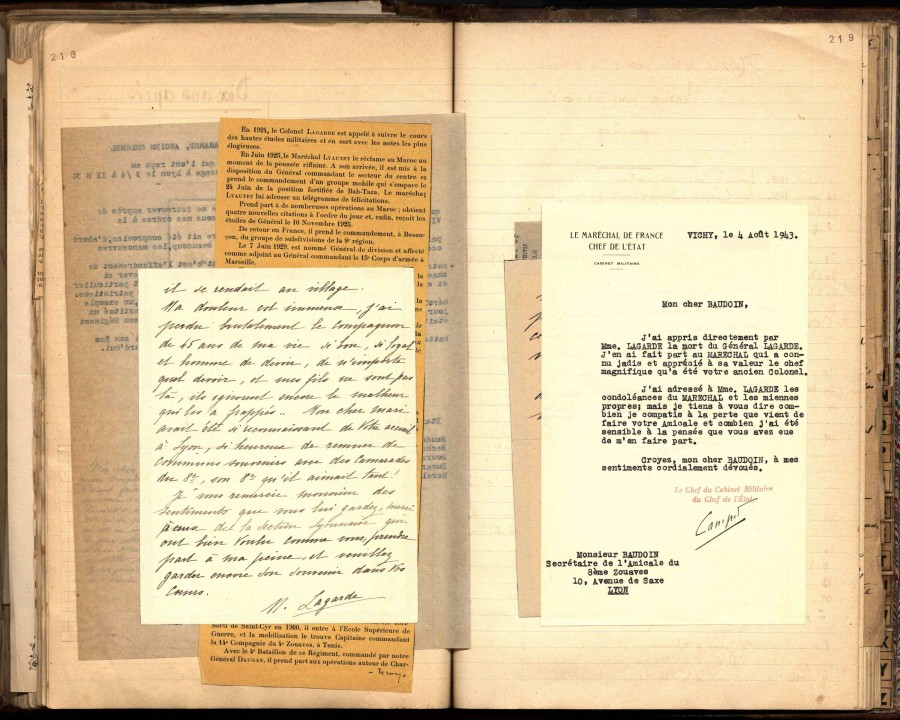 218
En 1924, le Colonel LAGARDE est appelé à suivre le cours
des hautes études militaires et en sort avec les notes les plus
élogieuses.
En Juin 1925, le Maréchal LYAUTEY le réclame au Maroc au
moment de la poussée riffaine. A son arrivée, il est mis à la
disposition du Général commandant le secteur du centre et
prend le commandement d'un groupe mobile qui s'empare le
24 Juin de la position fortifiée de Bab-Taza. Le maréchal
LYAUTEY lui adresse un télégramme de félicitations.
Prend part à de nombreuses opérations au Maroc ; obtient
quatre nouvelles citations à l'ordre du jour et, enfin, reçoit les
étoiles de Général le 10 Novembre 1925.
De retour en France, il prend le commandement, à Besan-
çon, du groupe de subdivisions de la 8e région.
Le 7 Juin 1929, est nommé Général de division et affecté
comme adjoint au Général commandant le 15e Corps d'armée à
Marseille.
il se rendait au village.
Ma douleur est immense, j'ai
perdu brutalement le compagnon
de 45 ans de ma vie si bon, si loyal
et homme de devoir, de n'importe
quel devoir, et mes fils ne sont pas
là, ils ignorent encore le malheur
qui les a frappés.. Mon cher mari
avait été si reconnaissant de votre accueil
à Lyon, si heureux de remuer de
communs souvenirs avec des Camarades
du 8e, son 8e qu'il aimait tant!
Je vous remercie monsieur des
sentiments que vous lui gardez, merci
à ceux de la Section Lyonnaise qui
ont bien voulu comme vous, prendre
part à ma peine, et veuillez
garder encore son souvenir dans vos
Cœurs.
M. Lagarde
Sorti de Saint-Cyr en 1900, il entre à l'Ecole Supérieure de
Guerre, et la mobilisation le trouve Capitaine commandant
la 14e Compagnie du 4e Zouaves, à Tunis.
Avec le 4e Bataillon de ce Régiment, commandé par notre
Général DAUGAN, il prend part aux opérations autour de Char-
leroy.
219
LE MARÉCHAL DE FRANCE
CHEF DE L'ÉTAT
CABINET MILITAIRE
VICHY, le 4 Août 1943.
Mon cher BAUDOIN,
J'ai appris directement par
Mme. LAGARDE la mort du Général LAGARDE.
J'en ai fait part au MARECHAL qui a con-
nu jadis et apprécié à sa valeur le chef
magnifique qu'a été votre ancien Colonel.
J'ai adressé à Mme. LAGARDE les
condoléances du MARECHAL et les miennes
propres; mais je tiens à vous dire com-
bien je compatis à la perte que vient de
faire votre Amicale et combien j'ai été
sensible à la pensée que vous avez eue
de m'en faire part.
Croyez, mon cher BAUDOIN, à mes
sentiments cordialement dévoués.
Le Chef du Cabinet Militaire
du Chef de l'État
Monsieur BAUDOIN
Secrétaire de l'Amicale du
8ème Zouaves
10, Avenue de Saxe
LYON